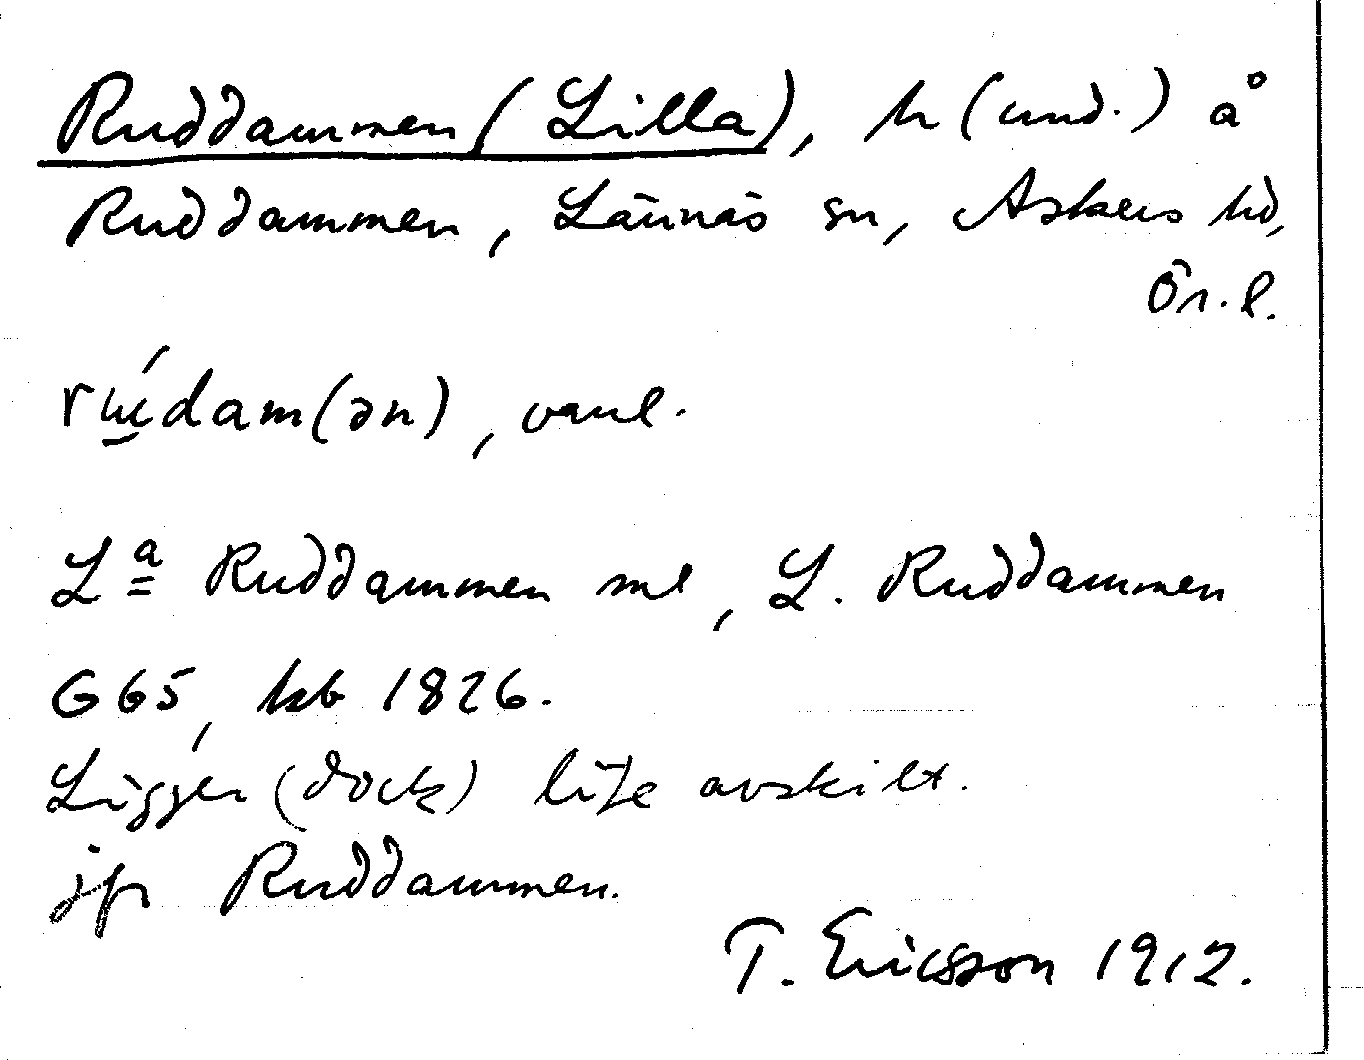 Ruddammen (Lilla), h (und.) å
Ruddammen, Lännäs sn, Askers hd,
Ör. l.
rúdam(ən), vanl.
L<sup>a</sup> Ruddammen ml, L. Ruddammen
G 65, kb 1826.
Ligger (dock) lite avskilt.
jfr Ruddammen.
T. Ericsson 1912.